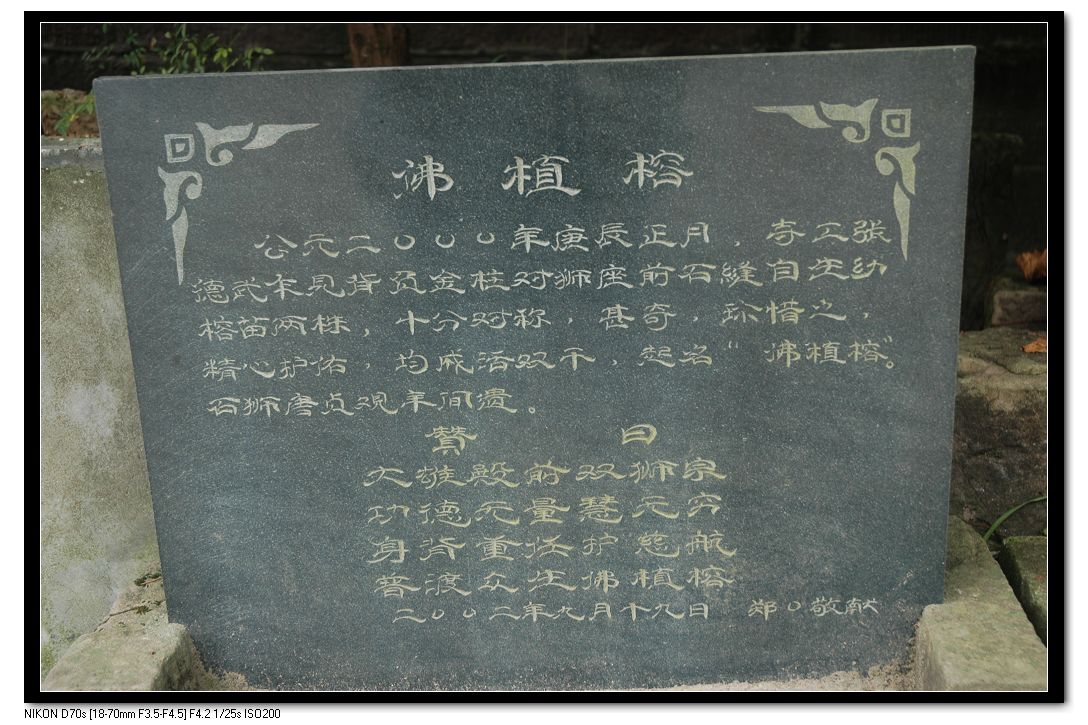 佛植榕
公元二〇〇〇年庚辰正月，寺工张
德武本见背负金柱对狮座前石缝自生幼
榕苗两株，十分对称，甚奇，珍惜之，
精心护佑，均成活双干，起名“佛植榕”。
石狮唐贞观年间遗。
赞曰
大雄殿前双狮宗
功德无量慧无穷
身背重任护慈航
普渡众生佛植榕
二〇〇二年九月十九日 郑〇敬献
NIKON D70s [18-70mm F3.5-F4.5] F4.2 1/25s ISO200